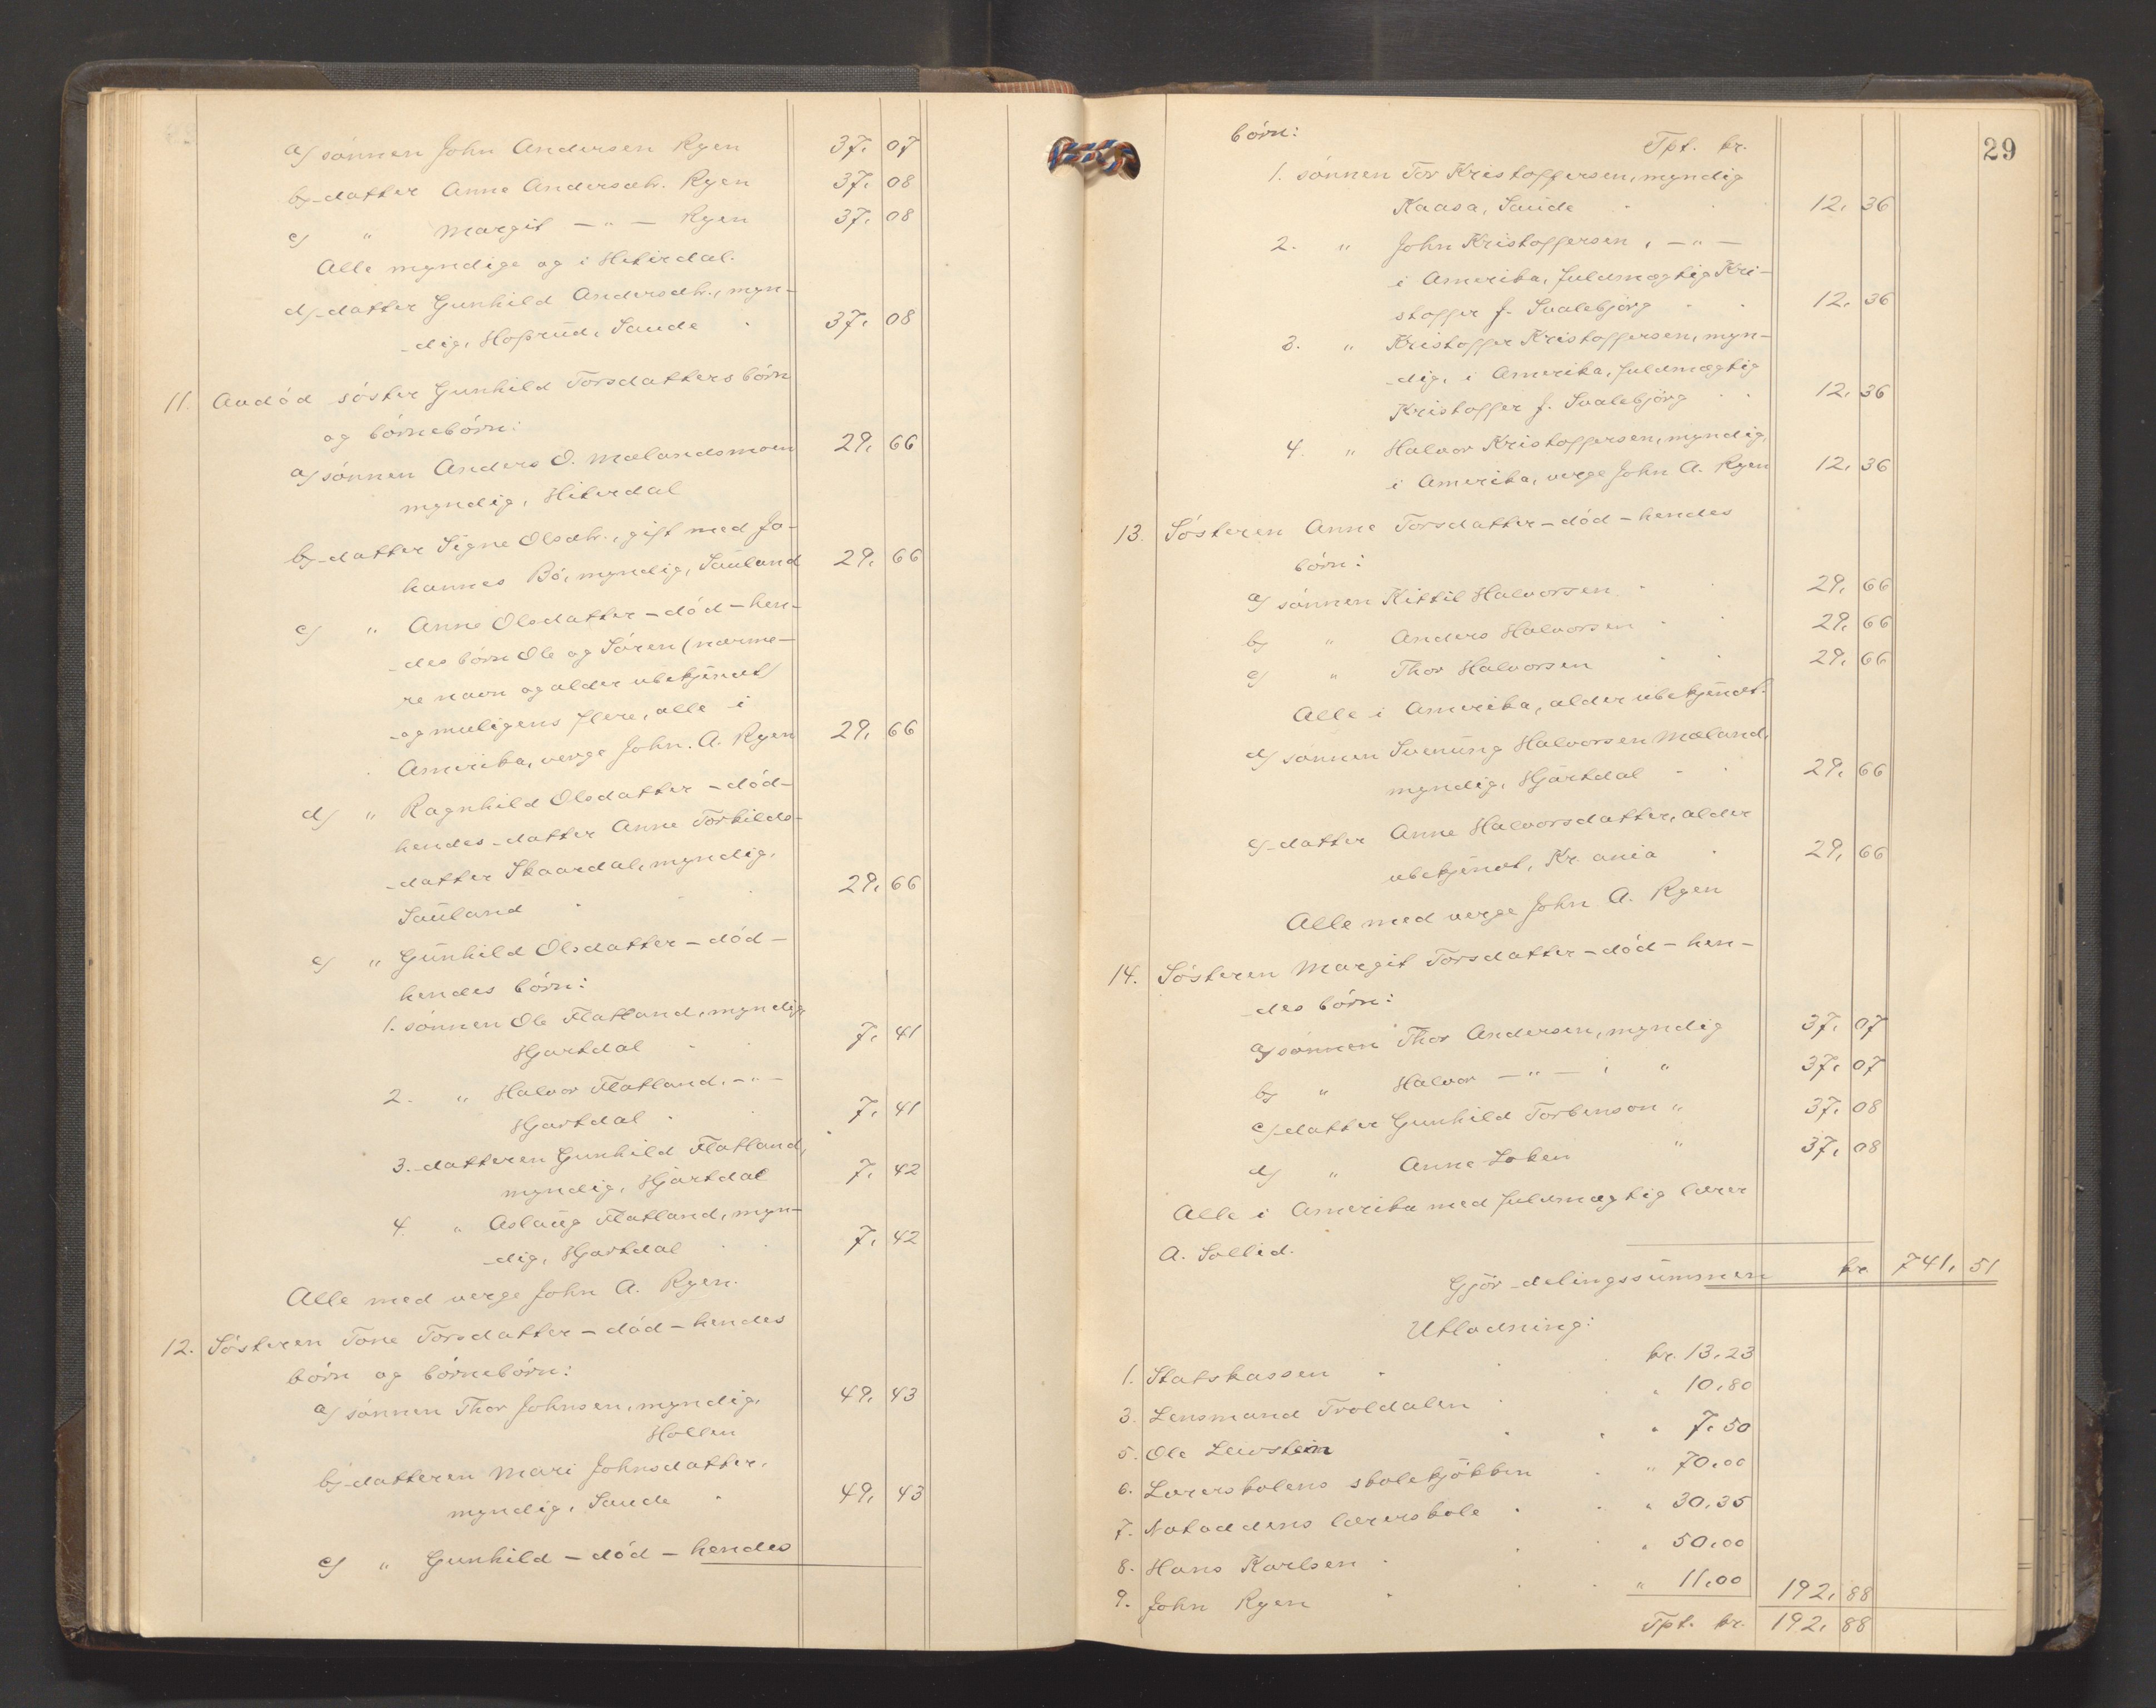 a/ sønnen John Andersen Ryen 37, 07
b/ datter Anne Andersdtr. Ryen 37, 08
c/ " Margit — " — Ryen 37, 08
Alle myndige og i Hiterdal.
d/ datter Gunhild Andersdtr., myn-
dig, Hoprud, Saude 37, 08
11. Avdød søster Gunhild Torsdatters børn
og børnebørn:
a/ sønnen Anders O. Mælandsmoen 29, 66
myndig, Hiterdal
b/ datter Signe Olsdtr., gift med Jo-
hannes Bø, myndig, Sauland 29, 66
c/ " Anne Olsdatter - død - hen-
des børn Ole og Søren (nærme-
re navn og alder ubekjendt)
og muligens flere, alle i
Amerika, verge John. A. Ryen 29, 66
d/ " Ragnhild Olsdatter - død -
hendes datter Anne Torkilds-
datter Skaardal, myndig,
Sauland 29, 66
e/ " Gunhild Olsdatter - død -
hendes børn:
1. sønnen Ole Flatland, myndig,
Hjartdal 7, 41
2. " Halvor Flatland, - " -
Hjartdal 7, 41
3. datteren Gunhild Flatland,
myndig, Hjartdal 7, 42
4. " Aslaug Flatland, myn-
dig, Hjartdal 7, 42
Alle med verge John A. Ryen.
12. Søsteren Tone Torsdatter - død - hendes
børn og børnebørn:
a/ sønnen Thor Johnsen, myndig, 49, 43
Hollen
b/ datteren Mari Johnsdatter,
myndig, Saude 49, 43
c/ " Gunhild - død - hendes
29
børn: Tpt. kr.
1. sønnen Tor Kristoffersen, myndig
Kaasa, Saude 12, 36
2. " John Kristoffersen, - " -
i Amerika, fuldmægtig Kri-
stoffer J. Svalebjørg 12, 36
3. " Kristoffer Kristoffersen, myn-
dig, i Amerika, fuldmægtig
Kristoffer J. Svalebjørg 12, 36
4. " Halvor Kristoffersen, myndig,
i Amerika, verge John A. Ryen 12, 36
13. Søsteren Anne Torsdatter - død - hendes
børn:
a/ sønnen Kittil Halvorsen 29, 66
b/ " Anders Halvorsen 29, 66
c/ " Thor Halvorsen 29, 66
Alle i Amerika, alder ubekjendt.
d/ sønnen Svenung Halvorsen Mæland,
myndig, Hjartdal 29, 66
e/ datter Anne Halvorsdatter, alder
ubekjendt, Kr.ania 29, 66
Alle med verge John A. Ryen
14. Søsteren Margit Torsdatter - død - hen-
des børn:
a/ sønnen Thor Andersen, myndig 37, 07
b/ " Halvor — " — , " 37, 07
c/ datter Gunhild Torbenson " 37, 08
d/ " Anne Loken " 37, 08
Alle i Amerika med fuldmægtig lærer
A. Sollid.
Gjør delingssummen kr. 741, 51
Utlodning:
1. Statskassen kr. 13,23
3. Lensmand Troldalen " 10,80
5. Ole Leivstein " 7,50
6. Lærerskolens skolekjøkken " 70,00
7. Notoddens lærerskole " 30,35
8. Hans Karlsen " 50,00
9. John Ryen " 11,00 192, 88
Tpt. kr. 192, 88